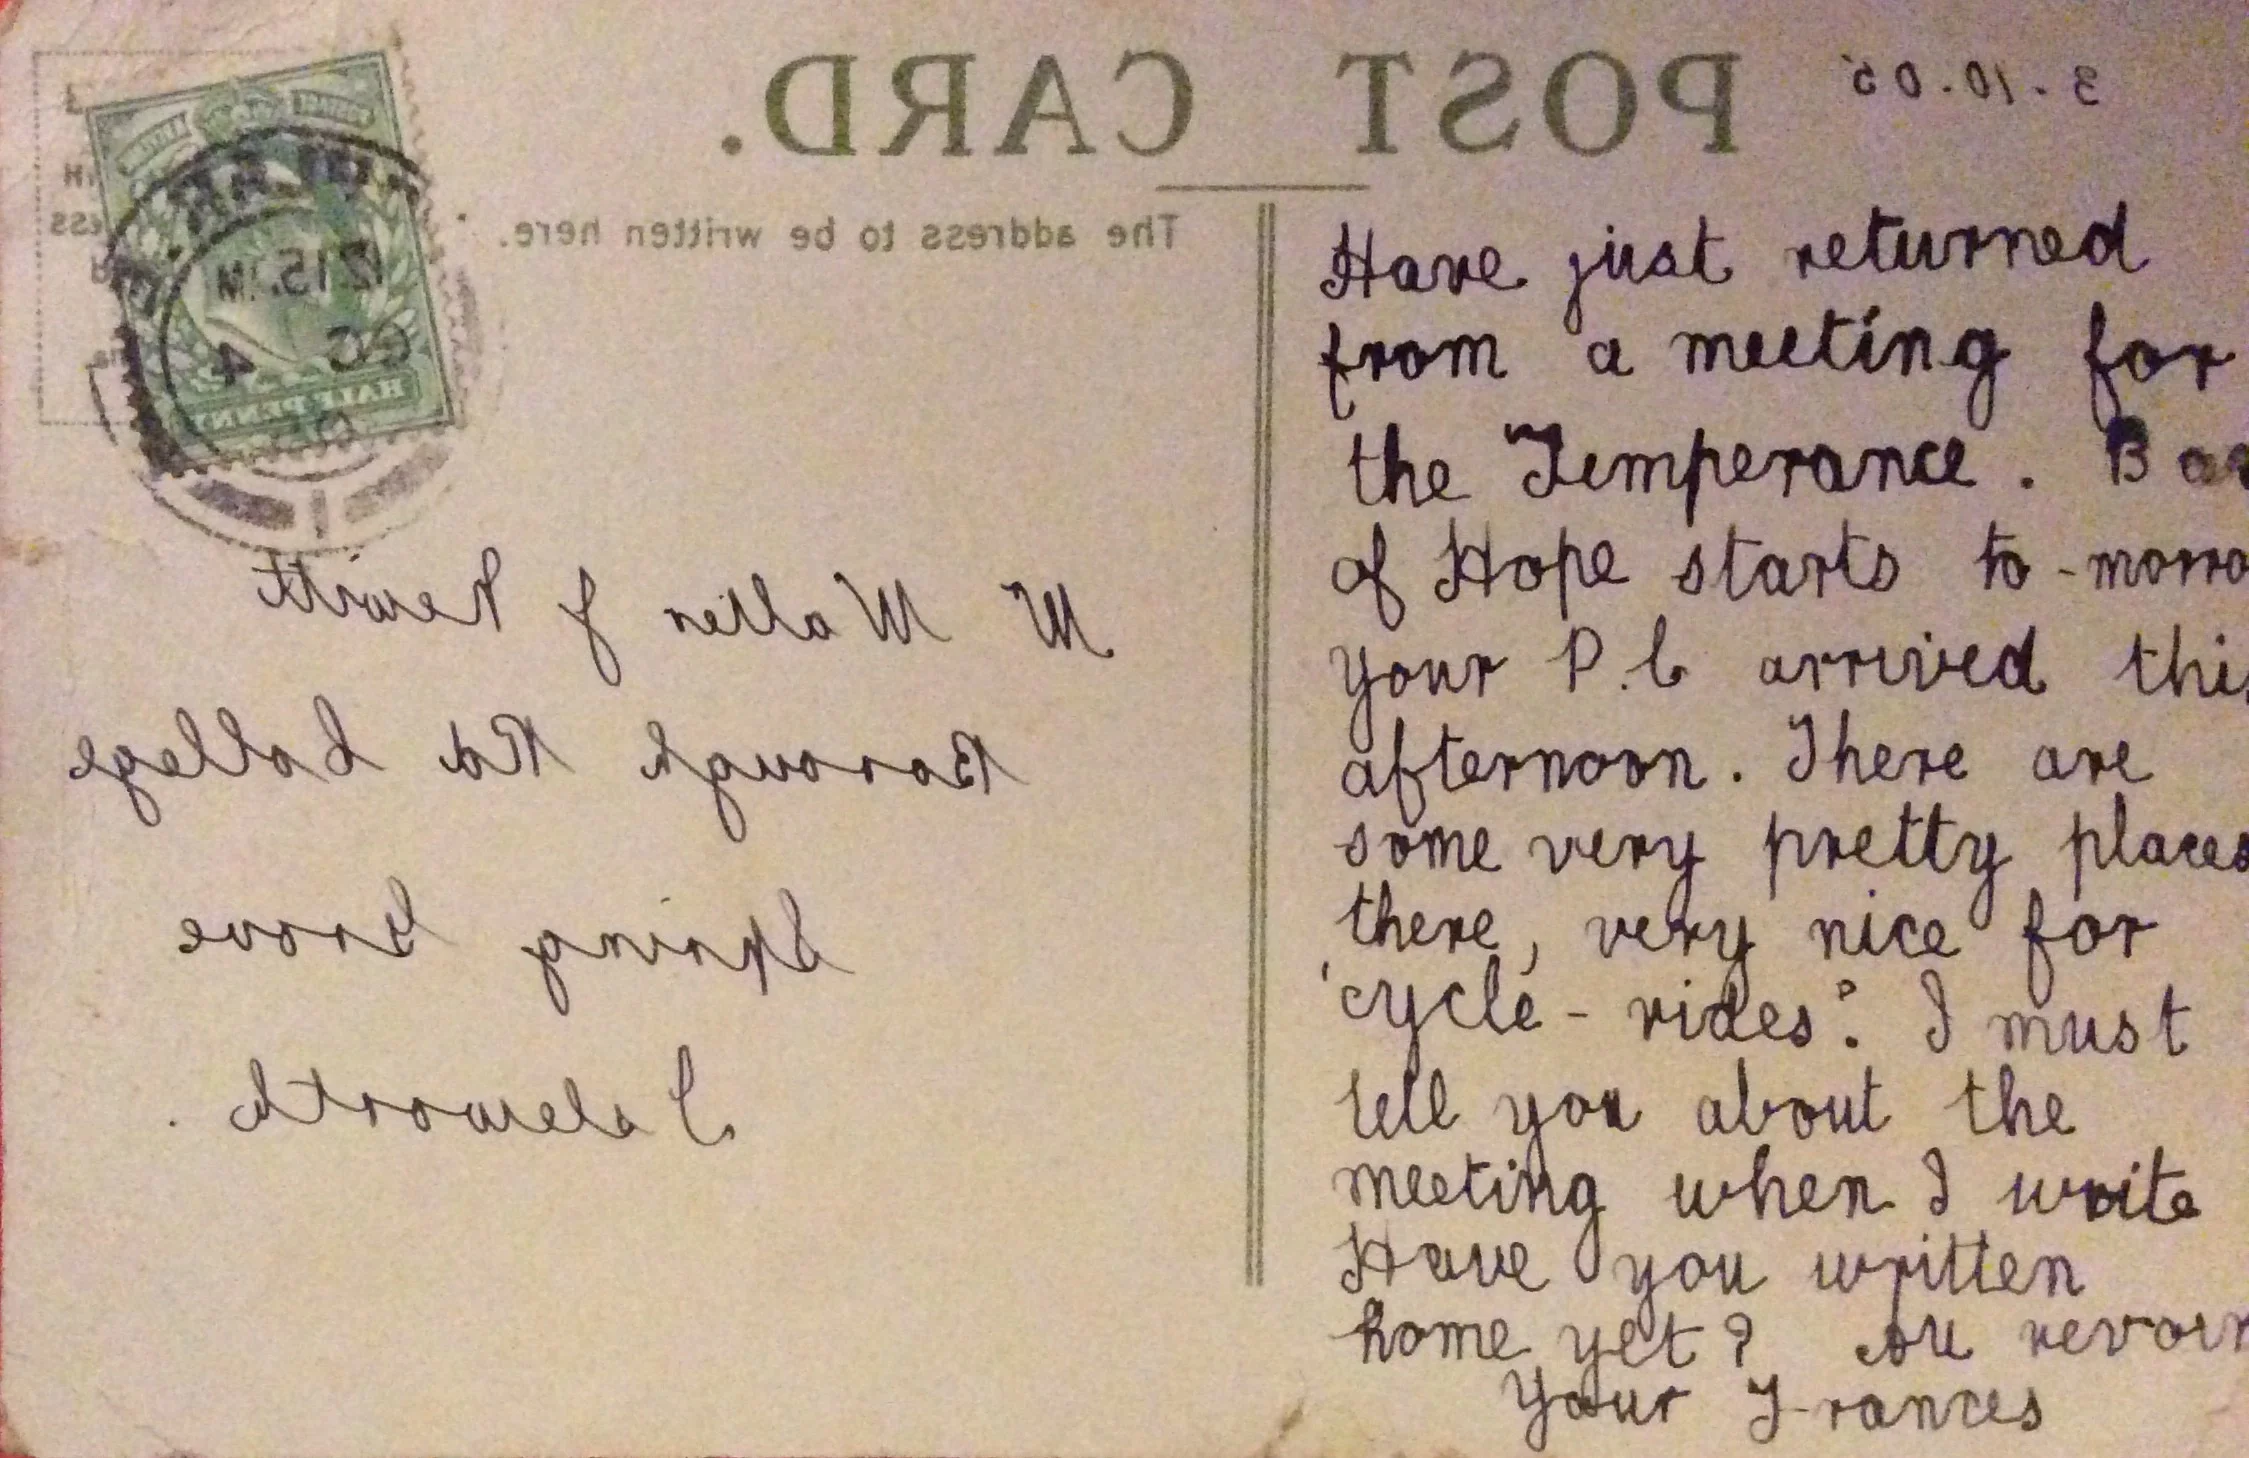 POST CARD.
3.10.05
The address to be written here.
HALF PENNY
12 15.
OC 4
Mr Walter J Hewitt
Borough Rd College
Spring Grove
Isleworth.
Have just returned
from a meeting for
the Temperance.
of Hope starts to-
your P.C arrived this
afternoon. There are
some very pretty places
there, very nice for
'cycle-rides? I must
tell you about the
meeting when I write
Have you written
home yet? Au revoir
Your Frances